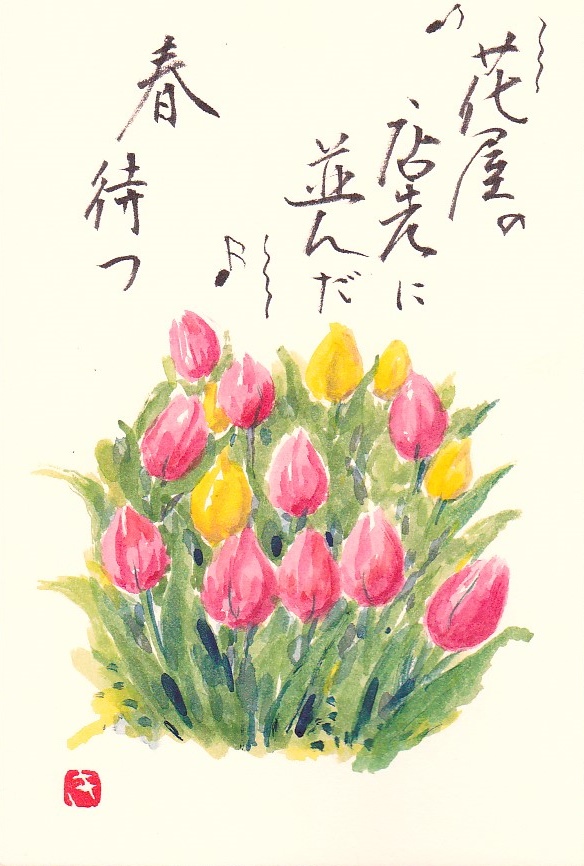 花屋の
店先に
並んだ
春
待つ